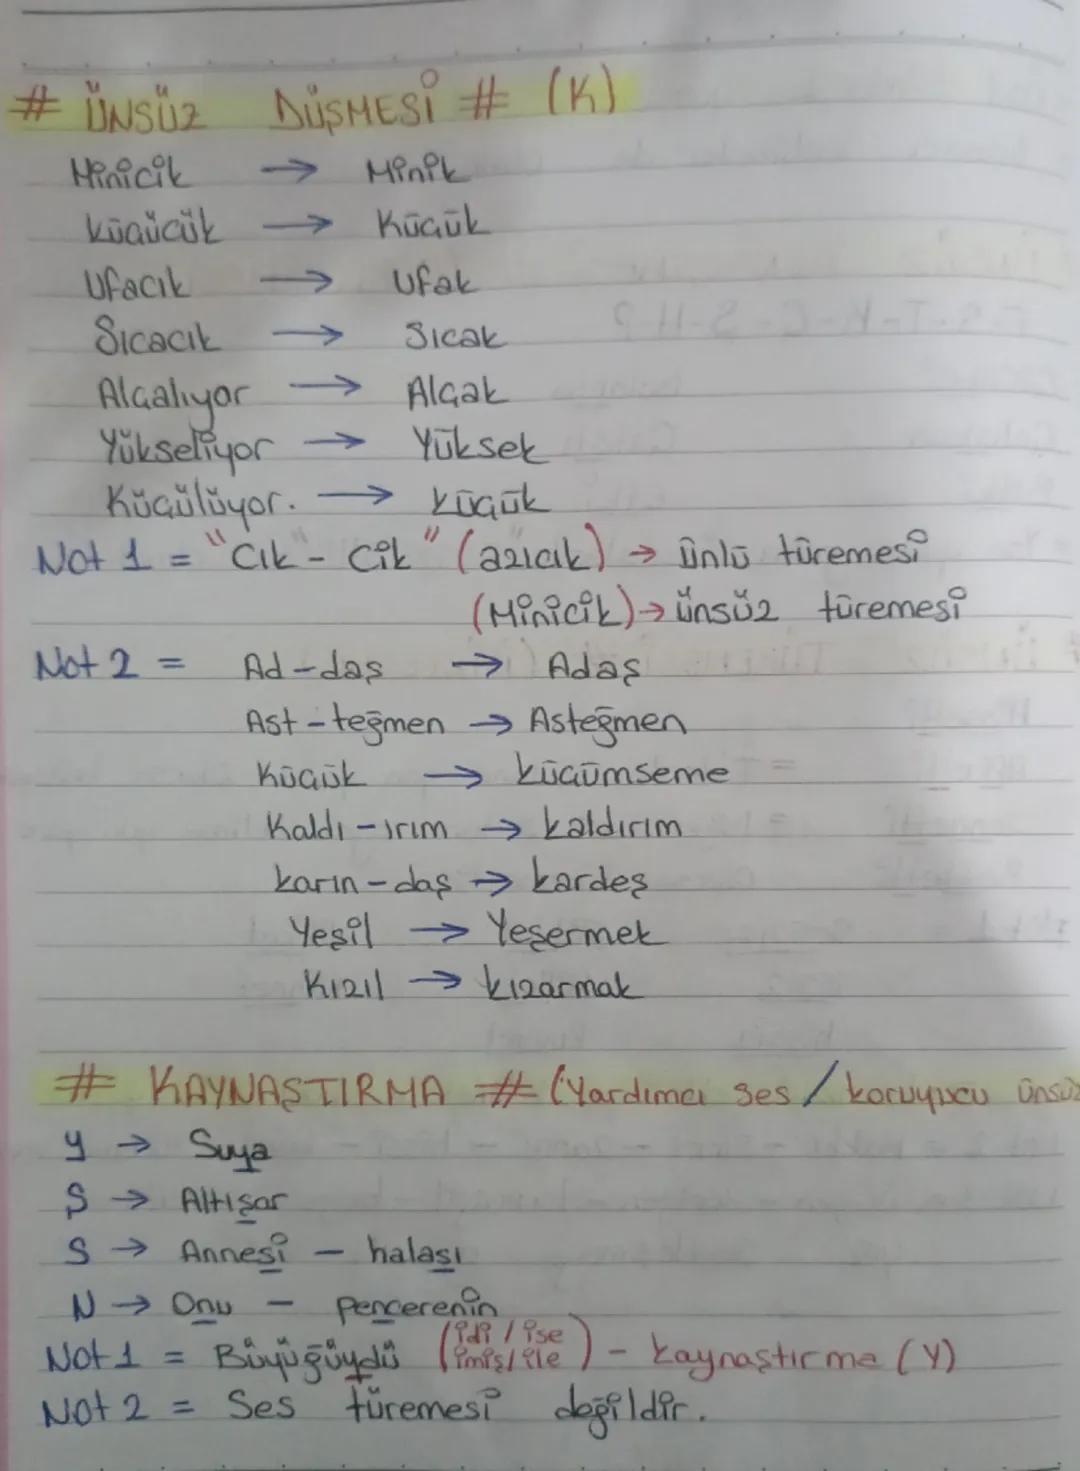 # ÜNSÜZ DÜŞMESİ # (K)
Minicik → Minik
küçücük → Küçük
Ufacık → Ufak
Sıcacık → Sıcak
Alçalıyor → Alçak
Yükseliyor → Yüksek
Küçülüyor. → küçük
Not 1 = "Cık - Cik" (azıcık) → ünlü türemesi
(Minicik) → ünsüz türemesi
Not 2 = Ad - daş → Adaş
Ast - teğmen → Asteğmen
Küçük → küçümseme
Kaldı - ırım → kaldırım
karın - daş → kardeş
Yeşil → Yeşermek
Kızıl → kızarmak
# KAYNAŞTIRMA # (Yardımcı ses / koruyucu ünsüz
y → Suya
Ş → Altışar
S → Annesi - halası
N → Onu - pencerenin
Not 1 = Büyüğüydü (idi / ise imiş / ile) - kaynaştırma (Y)
Not 2 = Ses türemesi değildir.